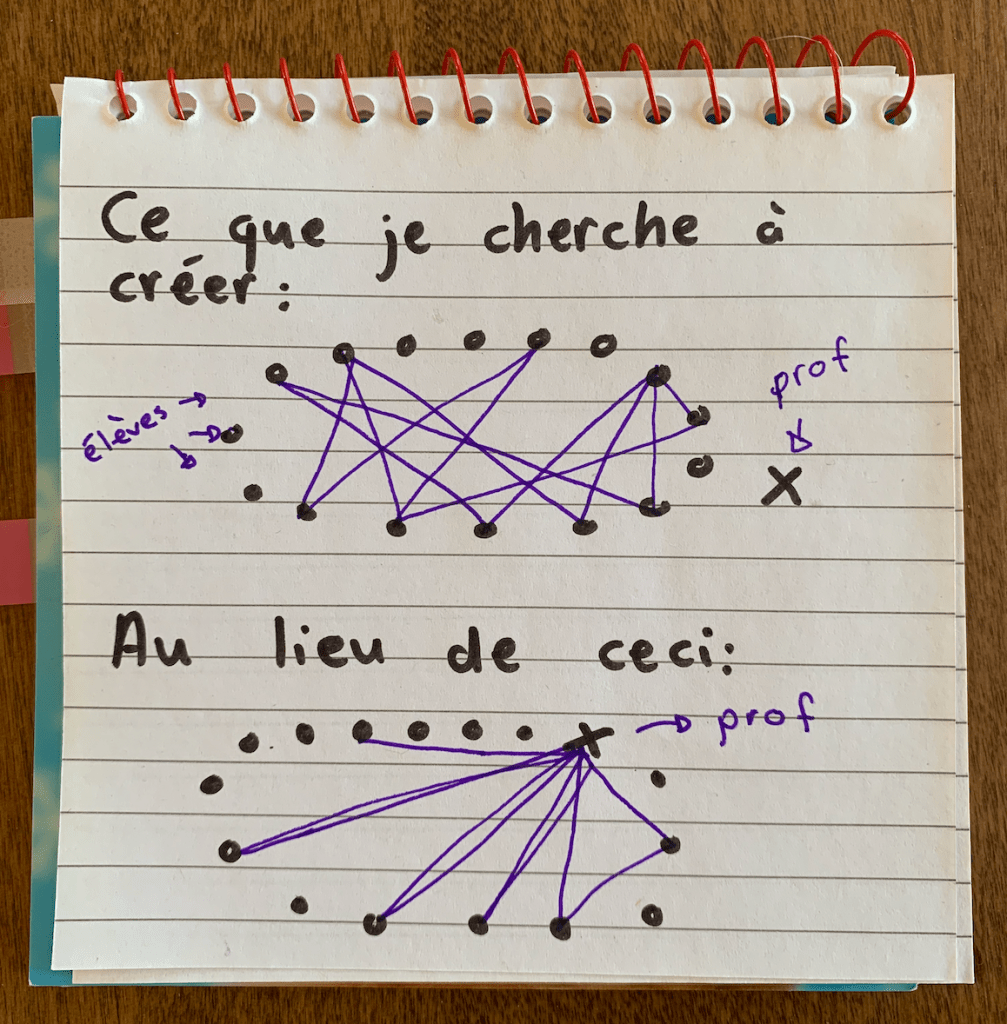 Ce que je cherche à
créer :
prof
élèves
X
Au lieu de ceci:
X
prof